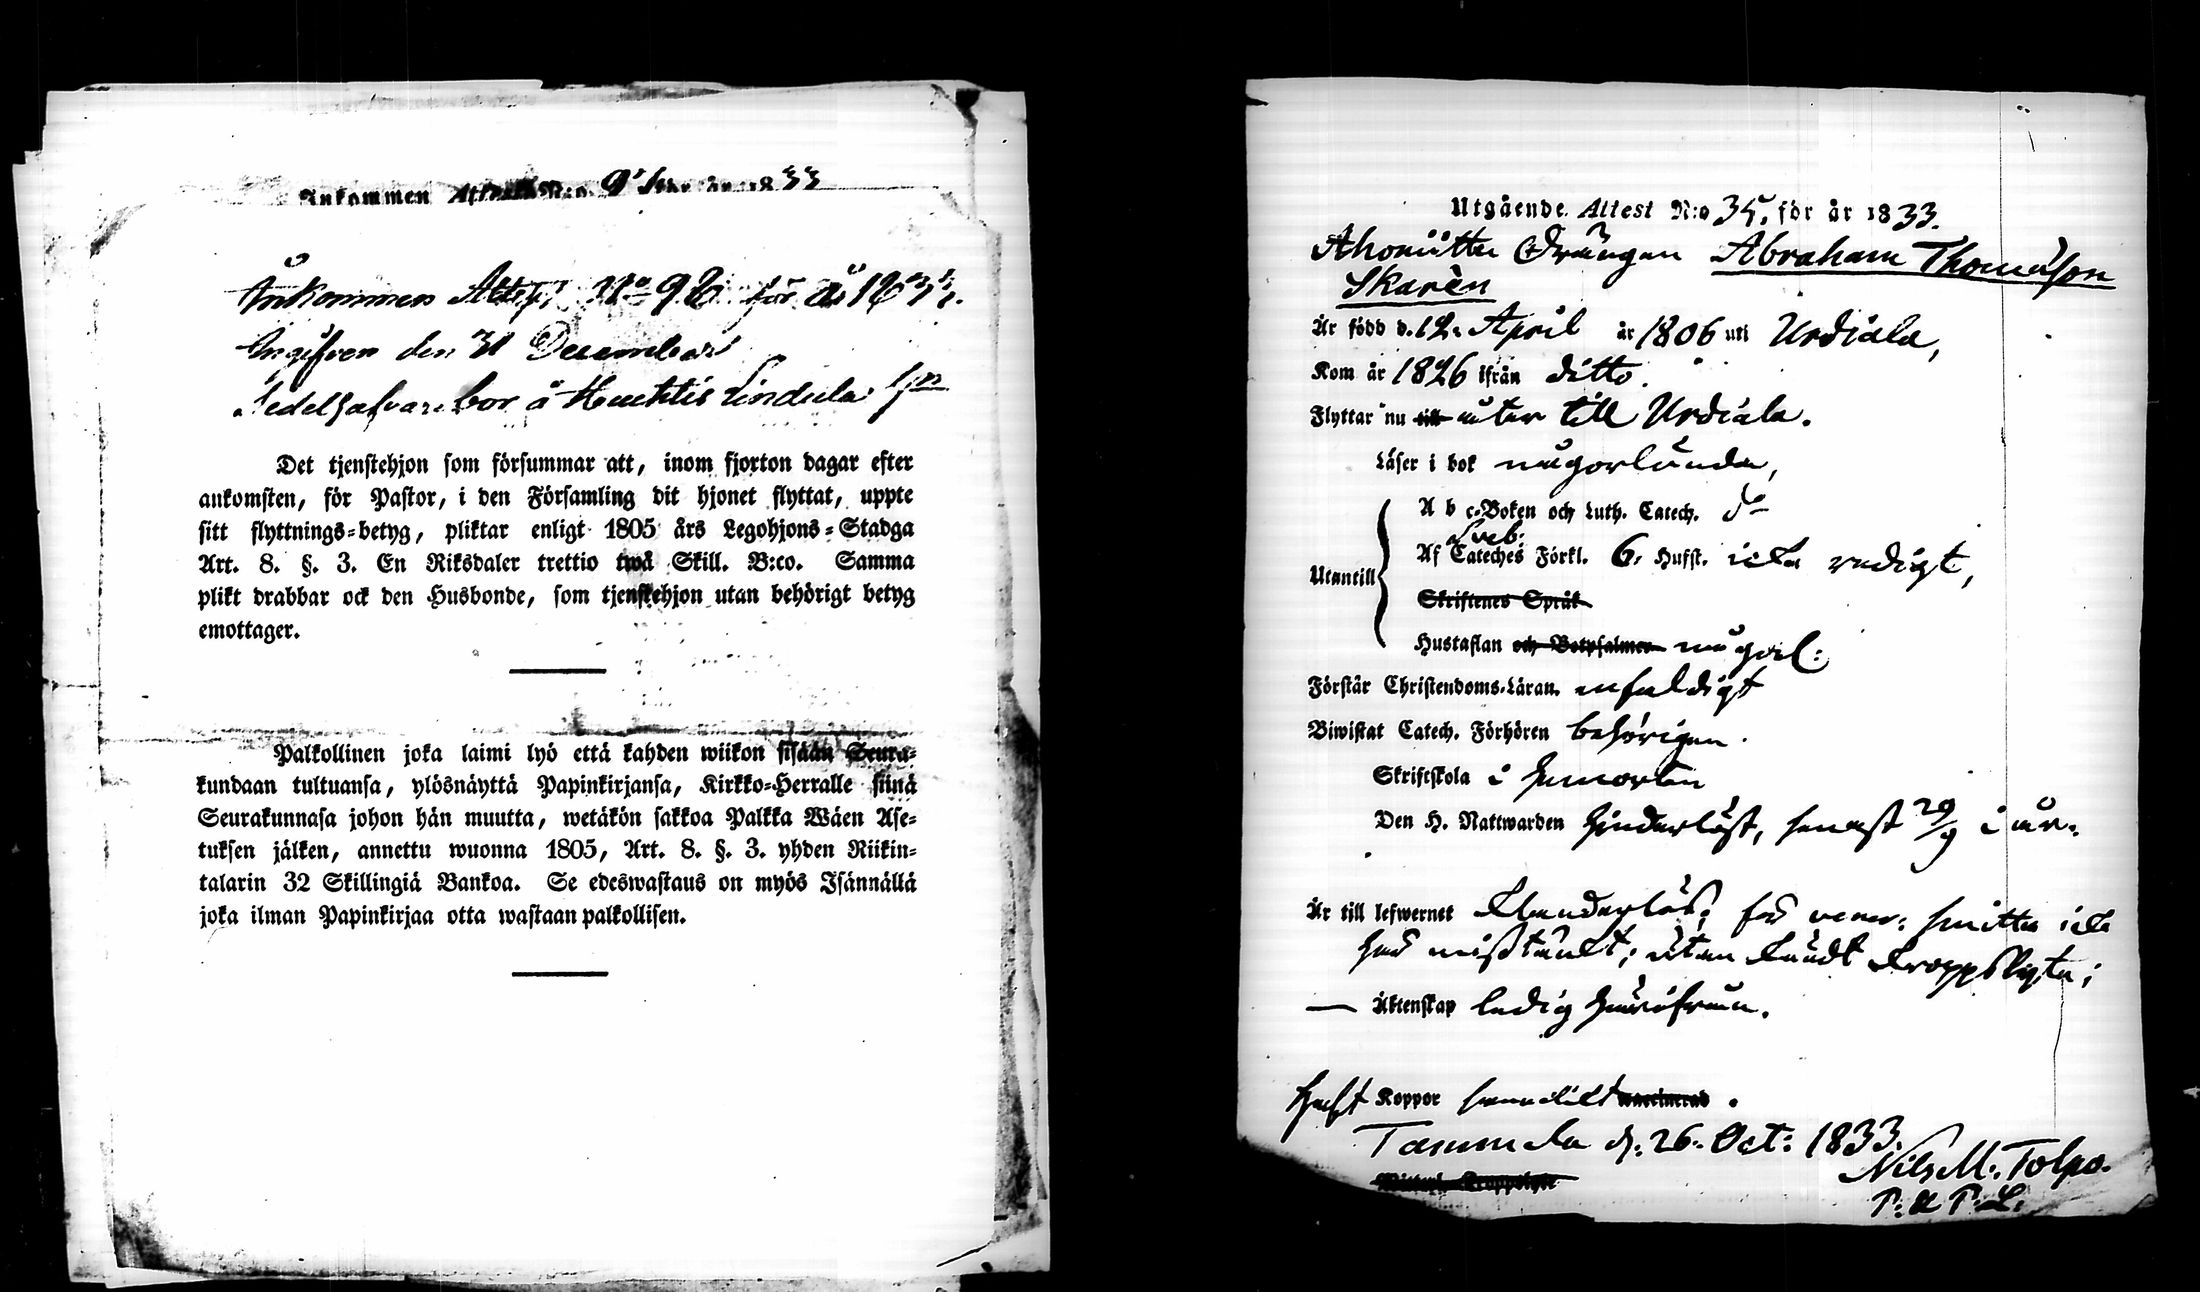 Inkommen Attest N:o 9 för år 1833
Ankommen Attest No 98 för år 1833.
Ingifven den 31 December
Sedelhafvaren bor å Huhtis Lindula
Det tjenstehjon som försummar att, inom fjorton dagar efter
ankomsten, för Pastor, i den Församling dit hjonet flyttat, uppte
sitt flyttnings-betyg, pliktar enligt 1805 års Legohjons-Stadga
Art. 8. §. 3. En Riksdaler trettio twå Skill. B:co. Samma
plikt drabbar ock den Husbonde, som tjenstehjon utan behörigt betyg
emottager.
Palkollinen joka laimi lyö että kahden wiikon sisään Seura-
kundaan tultuansa, ylösnäyttä Papinkirjansa, Kirkko-Herralle siinä
Seurakunnasa johon hän muutta, wetäkön sakkoa Palkka Wäen Ase-
tuksen jälken, annettu wuonna 1805, Art. 8. §. 3. yhden Riikin-
talarin 32 Skillingiä Bankoa. Se edeswastaus on myös Isännällä
joka ilman Papinkirjaa otta wastaan palkollisen.
Utgående Attest N:o 35. för år 1833.
Ahonütto Drängen Abraham Thomasson
Skarèn
Är född d. 12. April år 1806 uti Urdiala,
Kom år 1826 ifrån ditto.
Flyttar nu till åter till Urdiala.
Läser i bok någorlunda,
A b c-Boken och Luth. Catech. do
Sveb.
Utantill Af Cateches Förkl. 6. Hufst. icke redigt,
Skriftenes Språk
Hustaflan och Botpsalmer någorl:
Förstår Christendoms-Läran. enfaldigt
Biwistat Catech. Förhören behörigen.
Skriftskola i hemorten
Den H. Nattwarden hinderlöst, senast 29/9 i år.
Är till lefwernet klanderlös; för vener: smitta icke
här misstänkt; utan kändt kroppslyte;
— Äktenskap ledig härifrån.
Haft Koppor vaccinerad.
Tammela d. 26. Oct: 1833.
Nils M. Tolpo.
P. & P. L.